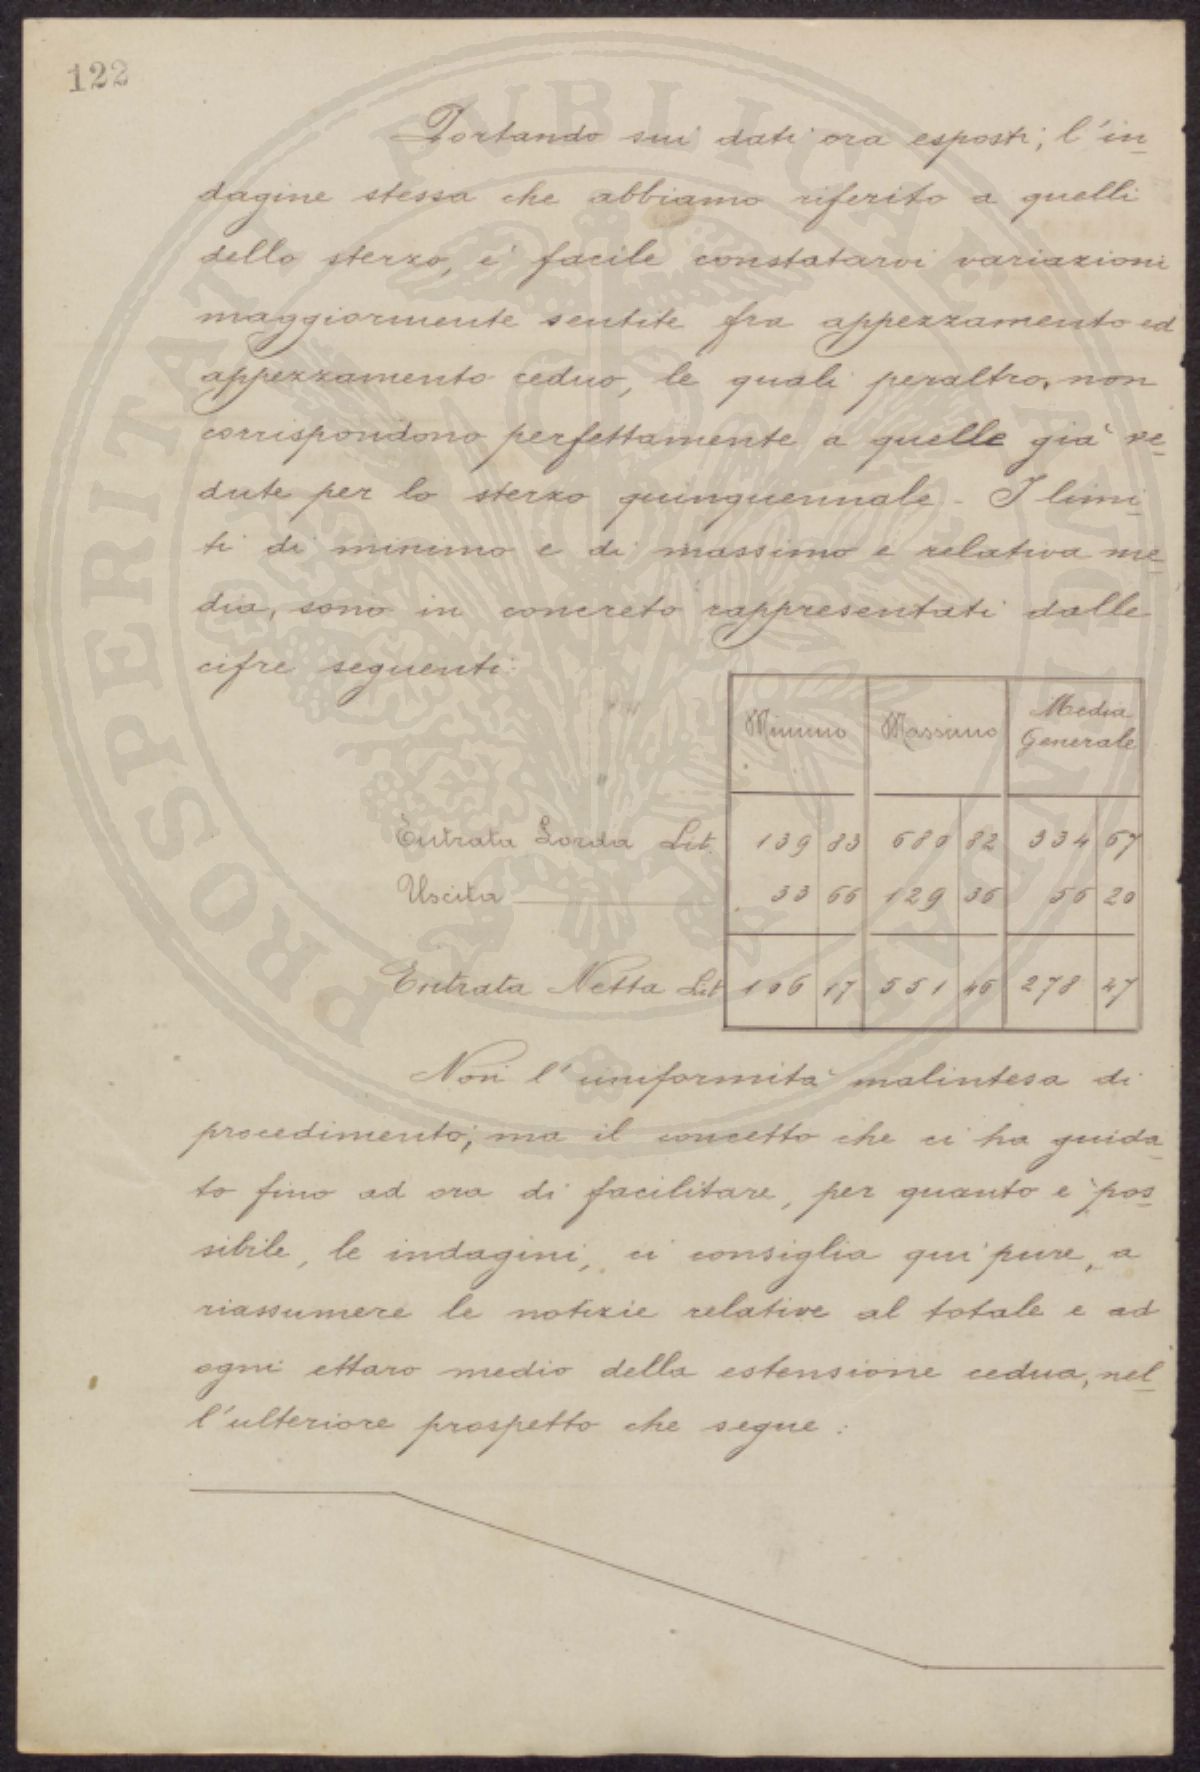 122
Portando sui dati ora esposti, l'in-
dagine stessa che abbiamo riferito a quelli
dello sterzo, è facile constatarvi variazioni
maggiormente sentite fra appezzamento ed
appezzamento ceduo, le quali peraltro, non
corrispondono perfettamente a quelle già ve-
dute per lo sterzo quinquennale - I limi-
ti di minimo e di massimo e relativa me-
dia, sono in concreto rappresentati dalle
cifre seguenti:
Minimo Massimo Media Generale
Entrata Lorda Lit. 139 83 680 82 334 67
Uscita 33 66 129 36 56 20
Entrata Netta Lit 106 17 551 46 278 47
Non l'uniformità malintesa di
procedimento, ma il concetto che ci ha guida-
to fino ad ora di facilitare, per quanto è pos-
sibile, le indagini, ci consiglia qui pure, a
riassumere le notizie relative al totale e ad
ogni ettaro medio della estensione cedua, nel-
l'ulteriore prospetto che segue:
PROSPERITATI PUBLICAE AUGENDAE